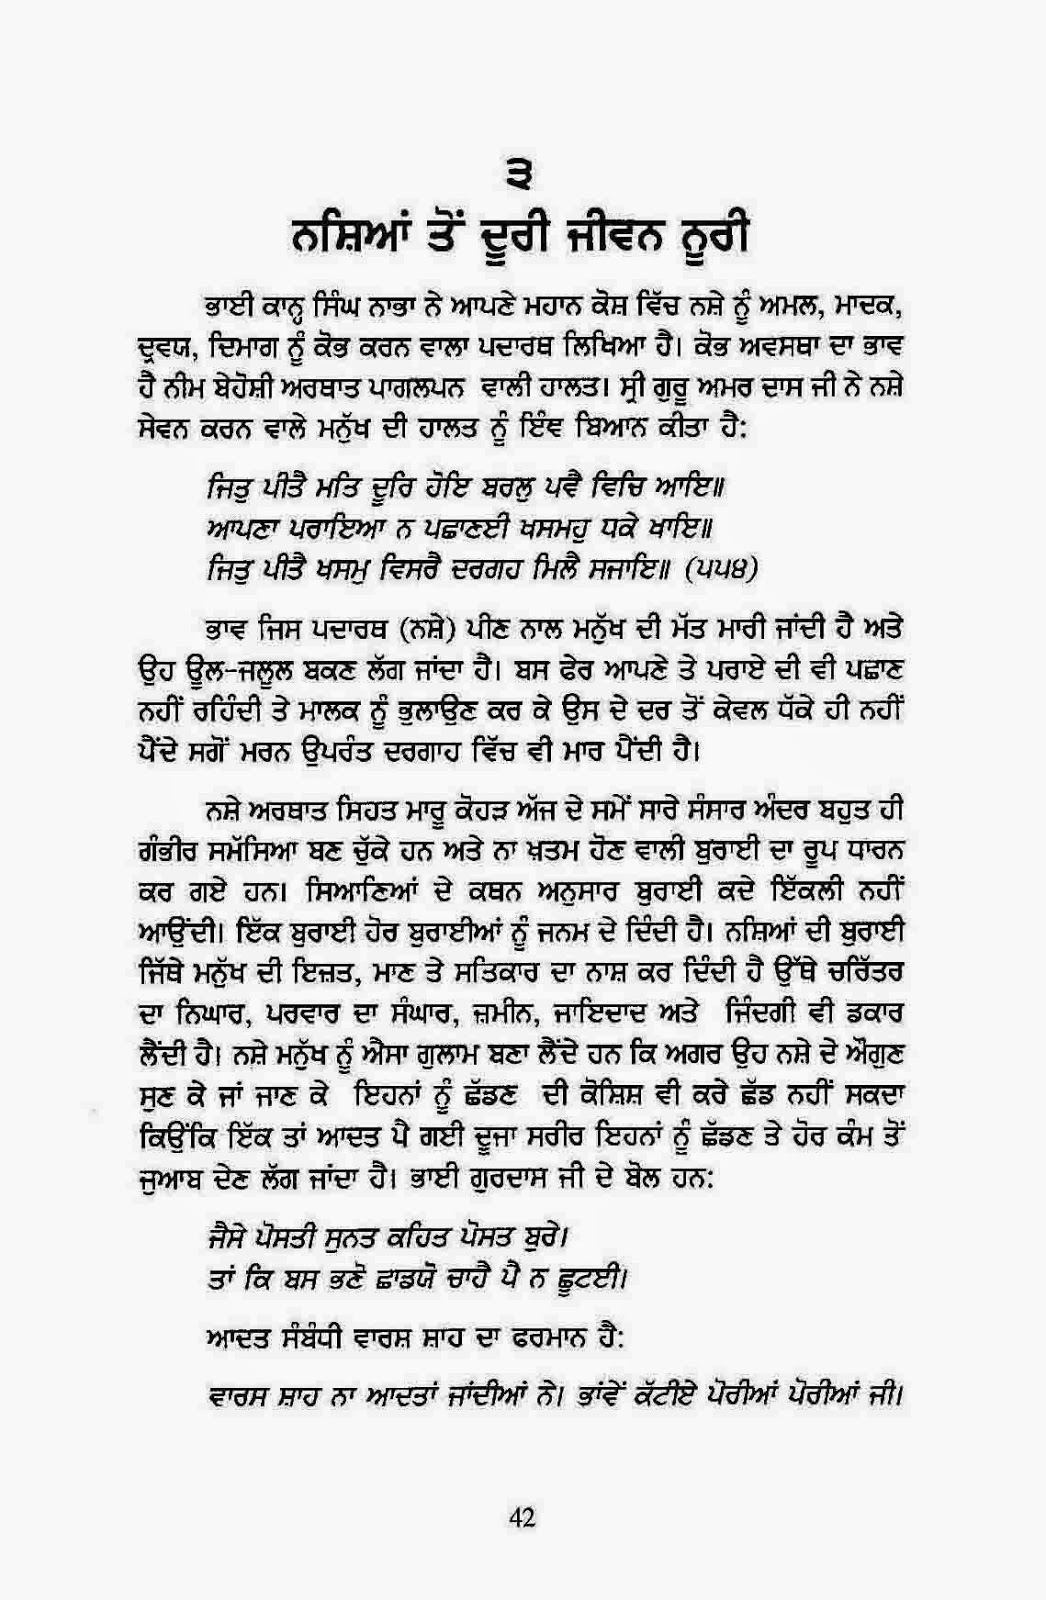 ੩
ਨਸ਼ਿਆਂ ਤੋਂ ਦੂਰੀ ਜੀਵਨ ਨੂਰੀ
ਭਾਈ ਕਾਨ੍ਹ ਸਿੰਘ ਨਾਭਾ ਨੇ ਆਪਣੇ ਮਹਾਨ ਕੋਸ਼ ਵਿੱਚ ਨਸ਼ੇ ਨੂੰ ਅਮਲ, ਮਾਦਕ,
ਦ੍ਰਵਯ, ਦਿਮਾਗ ਨੂੰ ਕੋਭ ਕਰਨ ਵਾਲਾ ਪਦਾਰਥ ਲਿਖਿਆ ਹੈ। ਕੋਭ ਅਵਸਥਾ ਦਾ ਭਾਵ
ਹੈ ਨੀਮ ਬੇਹੋਸ਼ੀ ਅਰਥਾਤ ਪਾਗਲਪਨ ਵਾਲੀ ਹਾਲਤ। ਸ੍ਰੀ ਗੁਰੂ ਅਮਰ ਦਾਸ ਜੀ ਨੇ ਨਸ਼ੇ
ਸੇਵਨ ਕਰਨ ਵਾਲੇ ਮਨੁੱਖ ਦੀ ਹਾਲਤ ਨੂੰ ਇੰਞ ਬਿਆਨ ਕੀਤਾ ਹੈ:
ਜਿਤੁ ਪੀਤੈ ਮਤਿ ਦੂਰਿ ਹੋਇ ਬਰਲੁ ਪਵੈ ਵਿਚਿ ਆਇ॥
ਆਪਣਾ ਪਰਾਇਆ ਨ ਪਛਾਣਈ ਖਸਮਹੁ ਧਕੇ ਖਾਇ॥
ਜਿਤੁ ਪੀਤੈ ਖਸਮੁ ਵਿਸਰੈ ਦਰਗਹ ਮਿਲੈ ਸਜਾਇ॥ (੫੫੪)
ਭਾਵ ਜਿਸ ਪਦਾਰਥ (ਨਸ਼ੇ) ਪੀਣ ਨਾਲ ਮਨੁੱਖ ਦੀ ਮੱਤ ਮਾਰੀ ਜਾਂਦੀ ਹੈ ਅਤੇ
ਉਹ ਊਲ-ਜਲੂਲ ਬਕਣ ਲੱਗ ਜਾਂਦਾ ਹੈ। ਬਸ ਫੇਰ ਆਪਣੇ ਤੇ ਪਰਾਏ ਦੀ ਵੀ ਪਛਾਣ
ਨਹੀਂ ਰਹਿੰਦੀ ਤੇ ਮਾਲਕ ਨੂੰ ਭੁਲਾਉਣ ਕਰ ਕੇ ਉਸ ਦੇ ਦਰ ਤੋਂ ਕੇਵਲ ਧੱਕੇ ਹੀ ਨਹੀਂ
ਪੈਂਦੇ ਸਗੋਂ ਮਰਨ ਉਪਰੰਤ ਦਰਗਾਹ ਵਿੱਚ ਵੀ ਮਾਰ ਪੈਂਦੀ ਹੈ।
ਨਸ਼ੇ ਅਰਥਾਤ ਸਿਹਤ ਮਾਰੂ ਕੋਹੜ ਅੱਜ ਦੇ ਸਮੇਂ ਸਾਰੇ ਸੰਸਾਰ ਅੰਦਰ ਬਹੁਤ ਹੀ
ਗੰਭੀਰ ਸਮੱਸਿਆ ਬਣ ਚੁੱਕੇ ਹਨ ਅਤੇ ਨਾ ਖ਼ਤਮ ਹੋਣ ਵਾਲੀ ਬੁਰਾਈ ਦਾ ਰੂਪ ਧਾਰਨ
ਕਰ ਗਏ ਹਨ। ਸਿਆਣਿਆਂ ਦੇ ਕਥਨ ਅਨੁਸਾਰ ਬੁਰਾਈ ਕਦੇ ਇੱਕਲੀ ਨਹੀਂ
ਆਉਂਦੀ। ਇੱਕ ਬੁਰਾਈ ਹੋਰ ਬੁਰਾਈਆਂ ਨੂੰ ਜਨਮ ਦੇ ਦਿੰਦੀ ਹੈ। ਨਸ਼ਿਆਂ ਦੀ ਬੁਰਾਈ
ਜਿੱਥੇ ਮਨੁੱਖ ਦੀ ਇਜ਼ਤ, ਮਾਣ ਤੇ ਸਤਿਕਾਰ ਦਾ ਨਾਸ਼ ਕਰ ਦਿੰਦੀ ਹੈ ਉੱਥੇ ਚਰਿੱਤਰ
ਦਾ ਨਿਘਾਰ, ਪਰਵਾਰ ਦਾ ਸੰਘਾਰ, ਜ਼ਮੀਨ, ਜਾਇਦਾਦ ਅਤੇ ਜਿੰਦਗੀ ਵੀ ਡਕਾਰ
ਲੈਂਦੀ ਹੈ। ਨਸ਼ੇ ਮਨੁੱਖ ਨੂੰ ਐਸਾ ਗੁਲਾਮ ਬਣਾ ਲੈਂਦੇ ਹਨ ਕਿ ਅਗਰ ਉਹ ਨਸ਼ੇ ਦੇ ਔਗੁਣ
ਸੁਣ ਕੇ ਜਾਂ ਜਾਣ ਕੇ ਇਹਨਾਂ ਨੂੰ ਛੱਡਣ ਦੀ ਕੋਸ਼ਿਸ਼ ਵੀ ਕਰੇ ਛੱਡ ਨਹੀਂ ਸਕਦਾ
ਕਿਉਂਕਿ ਇੱਕ ਤਾਂ ਆਦਤ ਪੈ ਗਈ ਦੂਜਾ ਸਰੀਰ ਇਹਨਾਂ ਨੂੰ ਛੱਡਣ ਤੇ ਹੋਰ ਕੰਮ ਤੋਂ
ਜੁਆਬ ਦੇਣ ਲੱਗ ਜਾਂਦਾ ਹੈ। ਭਾਈ ਗੁਰਦਾਸ ਜੀ ਦੇ ਬੋਲ ਹਨ:
ਜੈਸੇ ਪੋਸਤੀ ਸੁਨਤ ਕਹਿਤ ਪੋਸਤ ਬੁਰੇ।
ਤਾਂ ਕਿ ਬਸ ਭਣੋ ਛਾਡਯੋ ਚਾਹੈ ਪੈ ਨ ਛੂਟਈ।
ਆਦਤ ਸੰਬੰਧੀ ਵਾਰਸ਼ ਸ਼ਾਹ ਦਾ ਫਰਮਾਨ ਹੈ:
ਵਾਰਸ ਸ਼ਾਹ ਨਾ ਆਦਤਾਂ ਜਾਂਦੀਆਂ ਨੇ। ਭਾਂਵੇਂ ਕੱਟੀਏ ਪੋਰੀਆਂ ਪੋਰੀਆਂ ਜੀ।
42